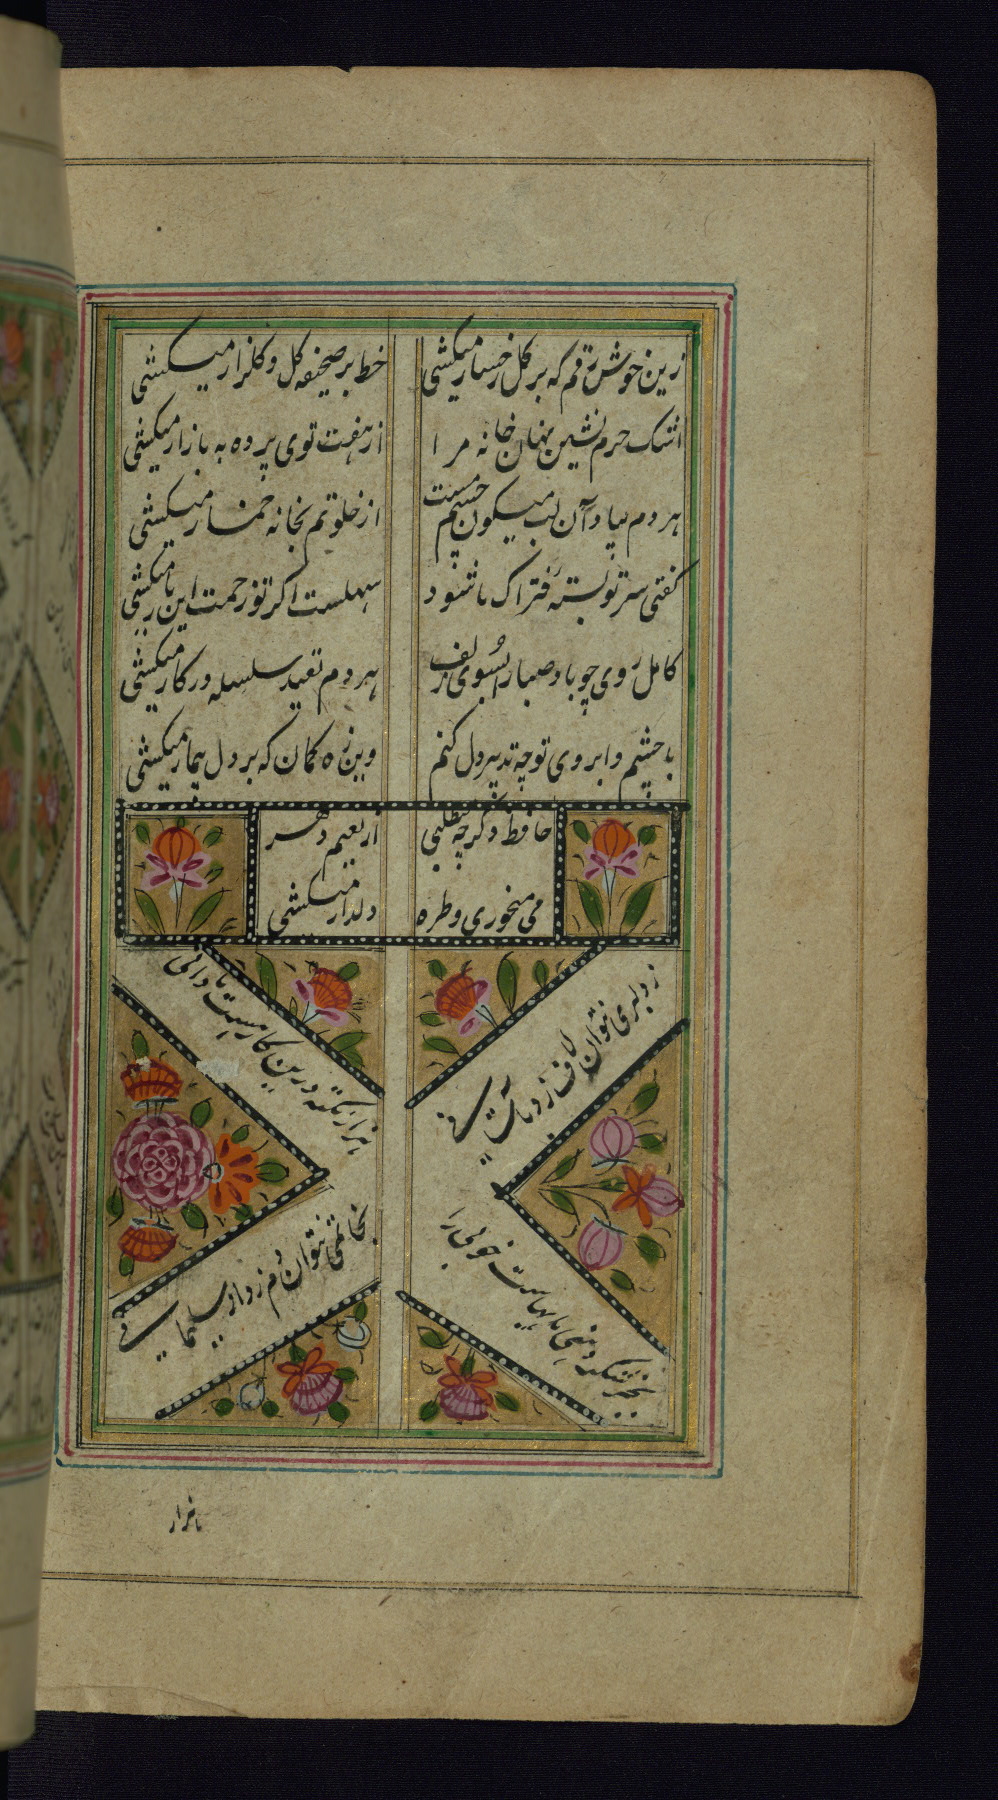 زین خوش رقم که بر گل رخسار میکشی خط بر صحیفه گل و گلزار میکشی
اشک حرم نشین نهان خانه مرا از هفت توی پرده به بازار میکشی
هر دم بیاد آن لب میگون چشم مست از خلوتم بخانه خمار میکشی
گفتی سر تو بسته فتراک ما شود سهلست اگر تو زحمت این بار میکشی
کاهل روی چو باد صبا را ببوی زلف هر دم بقید سلسله در کار میکشی
با چشم و ابروی تو چه تدبیر دل کنم وین زه کمان که بر دل بیمار میکشی
حافظ دگر چه میطلبی از نعیم دهر
می میخوری و طره دلدار میکشی
ز دلبری نتوان لاف زد بآسانی
هزار نکته درین کار هست تا دانی
بجز شکر دهنی مایهاست خوبی را
بخاتمی نتوان دم زد از سلیمانی
هزار